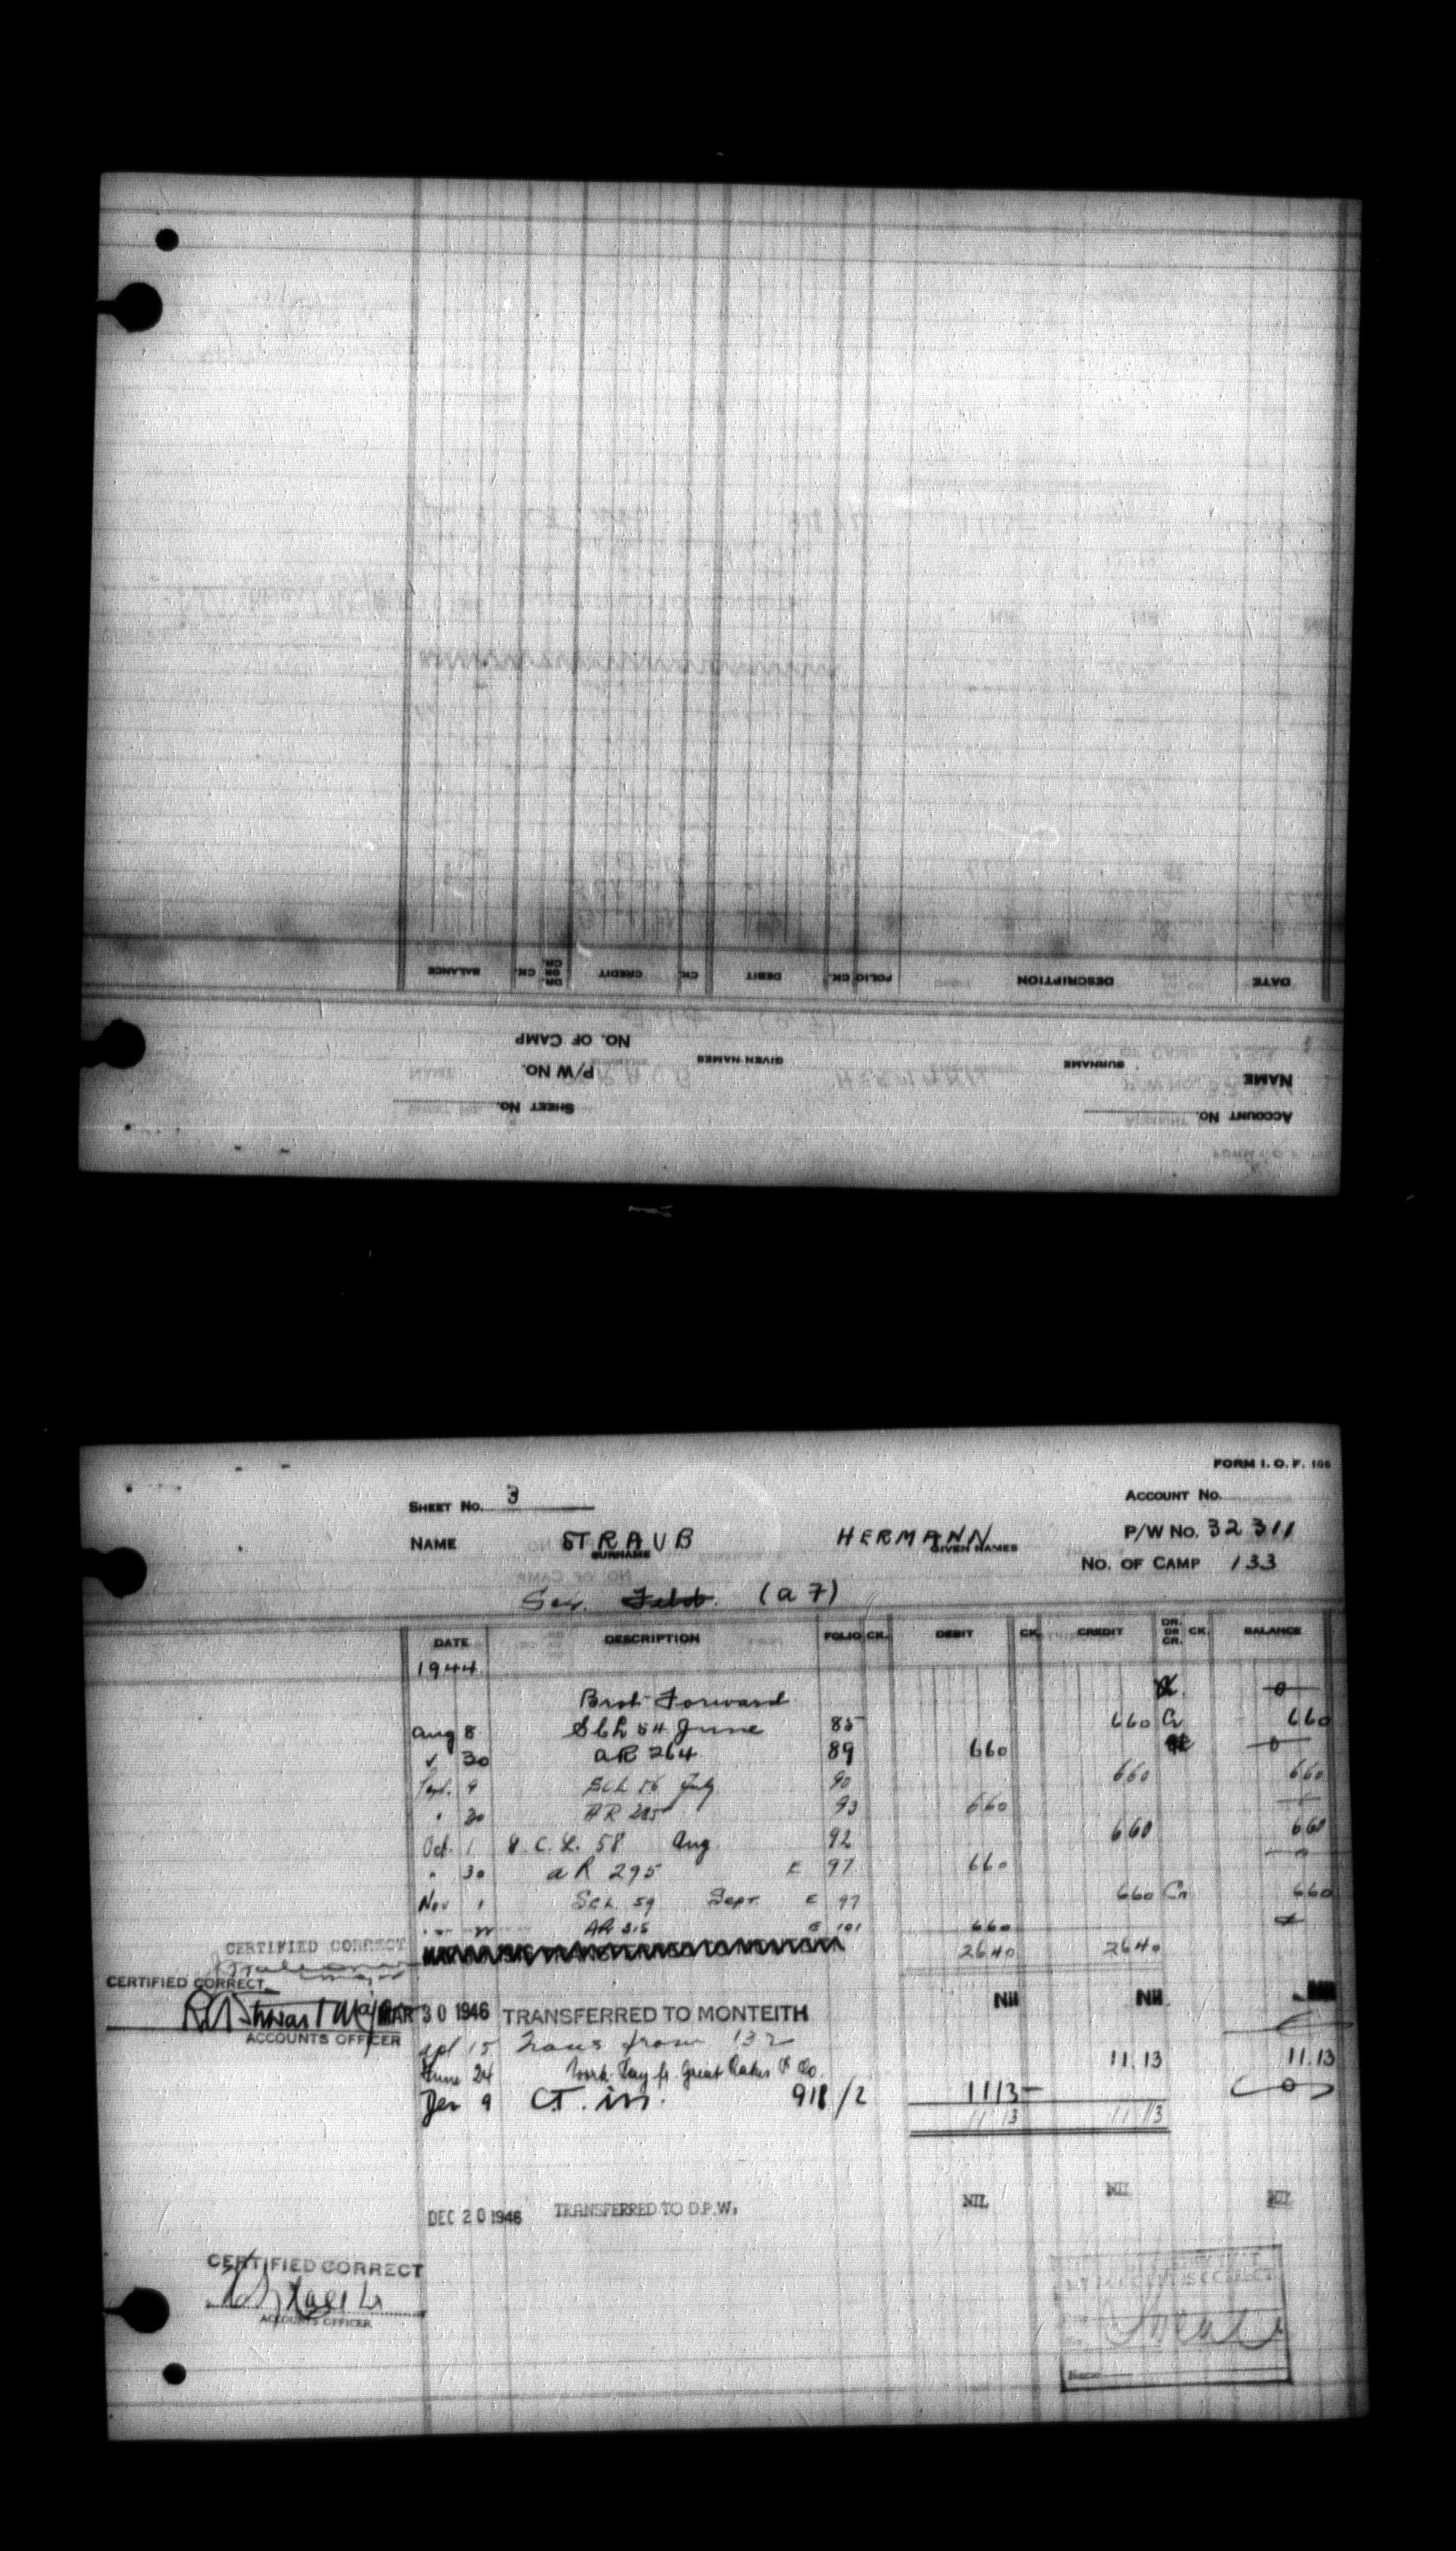 BALANCE CK. DR. OR CR. CREDIT CK. DEBIT CK. FOLIO DESCRIPTION DATE
NO. OF CAMP
P/W NO. GIVEN NAMES SURNAME NAME
SHEET NO. ACCOUNT NO.
FORM I. O. F. 106
SHEET NO. 3 ACCOUNT NO.
NAME STRAUB HERMANN P/W NO. 32311
SURNAME GIVEN NAMES
NO. OF CAMP 133
(a 7)
DATE DESCRIPTION FOLIO CK. DEBIT CK. CREDIT DR. OR CR. CK. BALANCE
1944
Brot Forward 0
Aug 8 Sch 54 June 85 660 Cr 660
30 AR 264 89 660 0
Sept. 9 Sch 56 July 90 660 660
" 30 AR 285 93 660
Oct. 1 S.C.L. 58 Aug. 92 660 660
" 30 AR 295 E 97 660
Nov 1 Sch. 59 Sept. E 97 660 Cr 660
AR 315 E 101 660
2640 2640
CERTIFIED CORRECT
CERTIFIED CORRECT
Nil Nil Nil
MAR 30 1946 TRANSFERRED TO MONTEITH
ACCOUNTS OFFICER
Apl 15 Trans from 132
June 24 Work Pay fr. Great Lakes P Co. 11.13 11.13
9 C.T. in. 918/2 1113 0
11 13 11 13
DEC 20 1946 TRANSFERRED TO D.P.W. NIL NIL NIL
CERTIFIED CORRECT
ACCOUNTS OFFICER